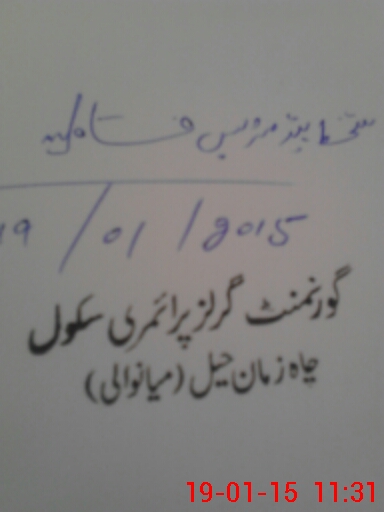 دستخط ہیڈ مدرس
19/01/2015
گورنمنٹ گرلز پرائمری سکول
چاہ زمان خیل (میانوالی)
19-01-15 11:31